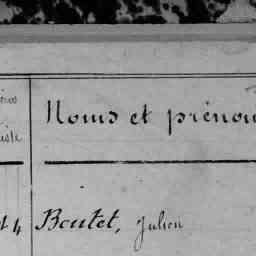 Noms et prénom
Boutet, Julien